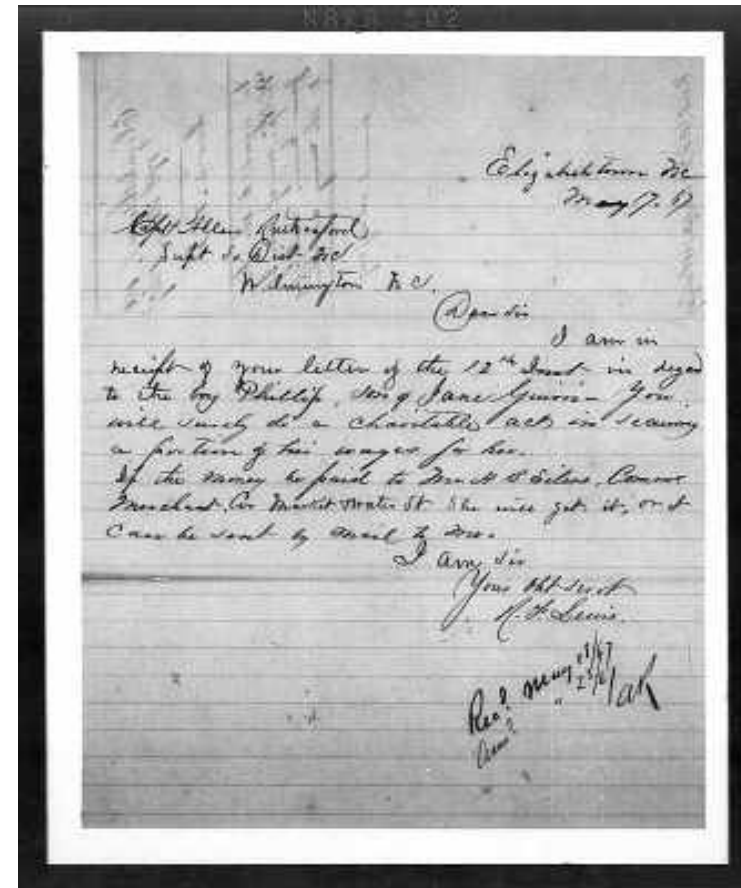 Elizabethtown NC
May 17. 67
Capt Allen Rutherford
Supt So. Dist NC
Wilmington N C.
Dear Sir
I am in
receipt of your letter of the 12th Inst in regard
to the boy Phillip, son of Jane You
will surely do a charitable act in securing
a portion of his wages for her.
If the money be paid to Mr H
Merchant, Cor Market & Water St she will get it, or it
can be sent by mail to me.
I am Sir
Your Obt Servt
Lewis.
Recd May
Ansd " AR